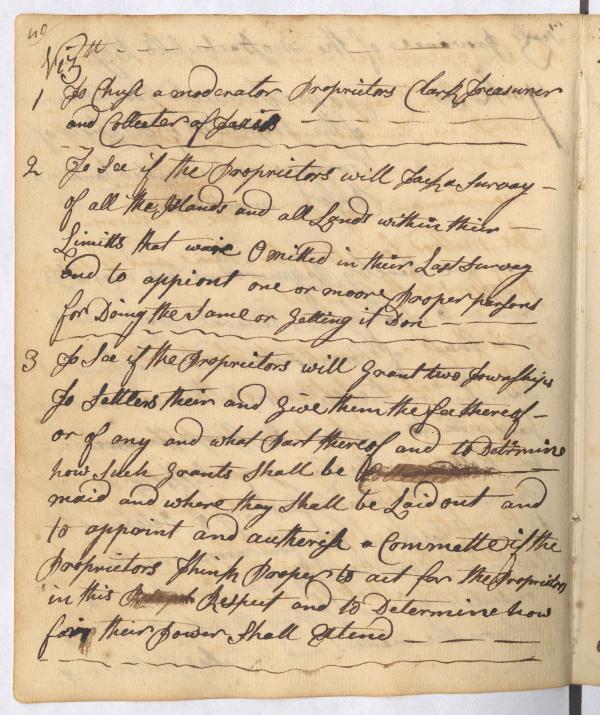 40
Vizth
1 To Chuse a moderator Proprietors Clark Treasurer
and Collecter of Taxes
2 To See if the Proprietors will Tack a Survay
of all the Islands and all Lands within their
Limitts that waire Omitted in their Last Survay
and to appiont one or moore Proper persons
for Doing the Same or Getting it Don
3 To See if the Proprietors will Grant two Townships
To Settlers their and Give them the fee thereof
or of any and what Part thereof and to Determine
how Such Grants Shall be
maid and where thay Shall be Laid out and
to appoint and autherise a Commette if the
Proprietors Think Proper to act for the Proprietors
in this Respect and to Determine how
fair their Power Shall Extend